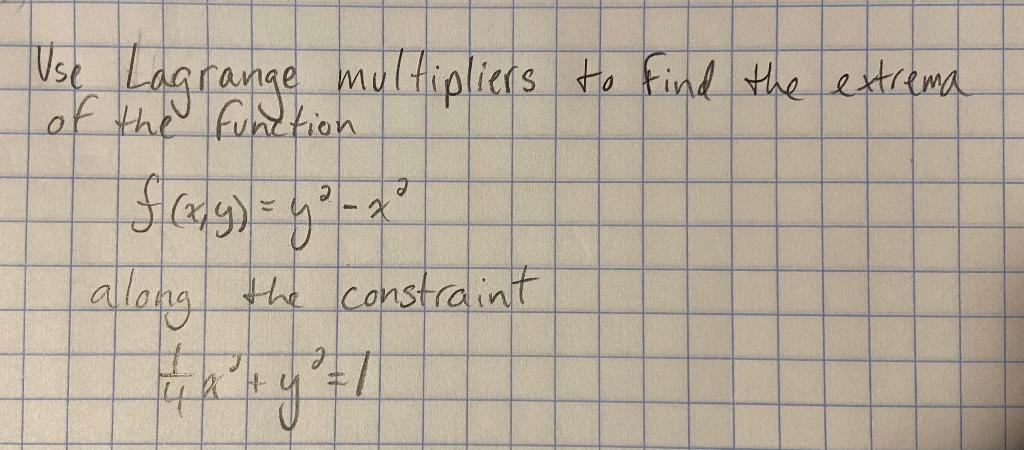 Use Lagrange multipliers to find the extrema
of the function
f(x,y) = y² - x²
along the constraint
1/4 x² + y² = 1